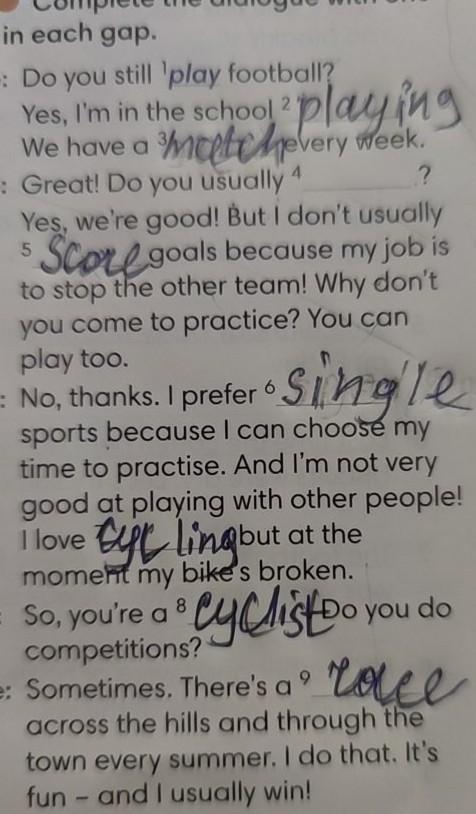 Complete the dialogue with one
in each gap.
: Do you still ¹play football?
Yes, I'm in the school ² playing
We have a ³match every week.
: Great! Do you usually ⁴ ________?
Yes, we're good! But I don't usually
⁵ Score goals because my job is
to stop the other team! Why don't
you come to practice? You can
play too.
: No, thanks. I prefer ⁶ single
sports because I can choose my
time to practise. And I'm not very
good at playing with other people!
I love cycling but at the
moment my bike's broken.
: So, you're a ⁸ cyclist Do you do
competitions?
e: Sometimes. There's a ⁹ race
across the hills and through the
town every summer. I do that. It's
fun – and I usually win!